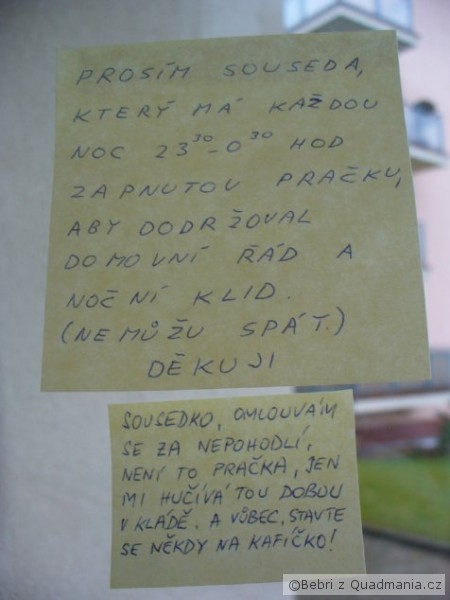 PROSÍM SOUSEDA,
KTERÝ MÁ KAŽDOU
NOC 23³⁰-0³⁰ HOD
ZAPNUTOU PRAČKU,
ABY DODRŽOVAL
DOMOVNÍ ŘÁD A
NOČNÍ KLID.
(NEMŮŽU SPÁT.)
DĚKUJI
SOUSEDKO, OMLOUVÁM
SE ZA NEPOHODLÍ,
NENÍ TO PRAČKA, JEN
MI HUČÍVÁ TOU DOBOU
V KLÁDĚ. A VŮBEC, STAVTE
SE NĚKDY NA KAFÍČKO!
©Bebri z Quadmania.cz